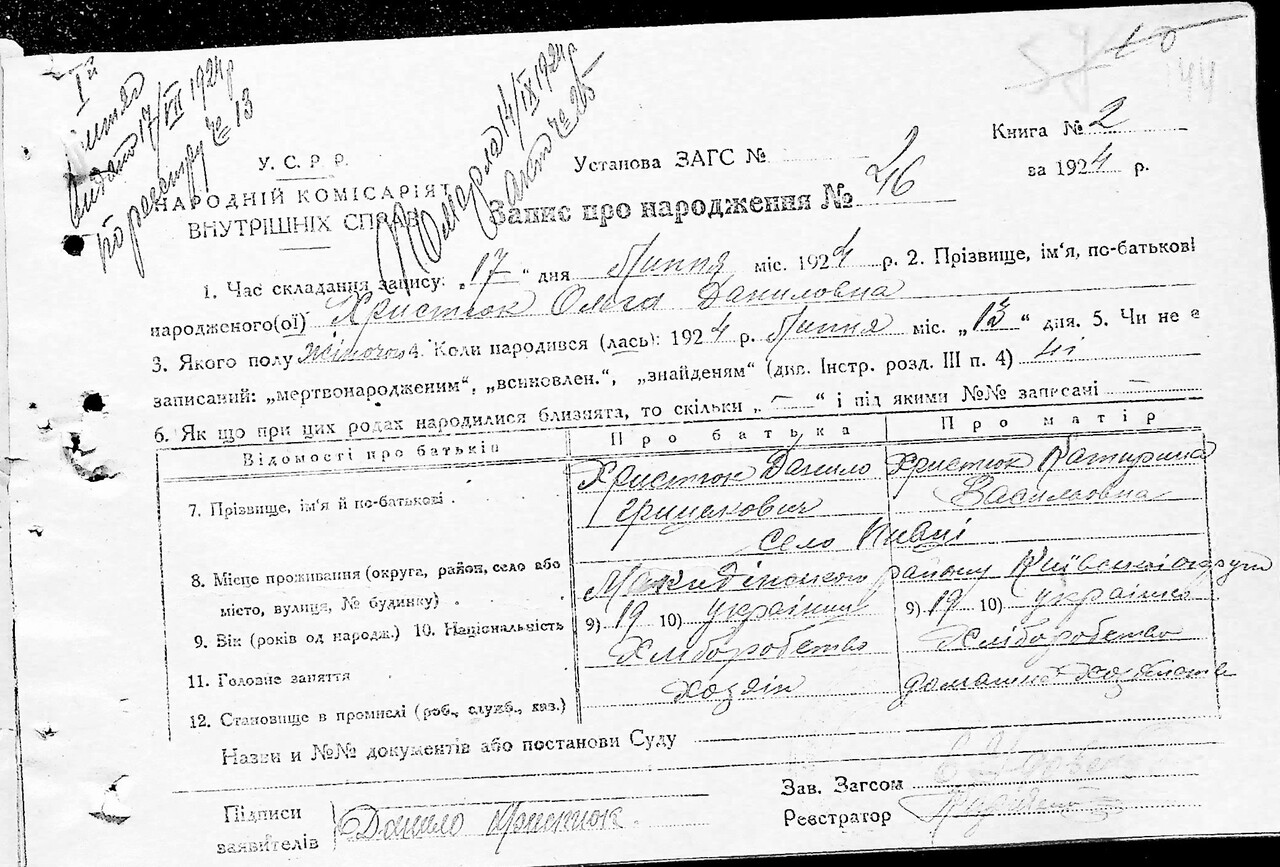 видано 17/VII 1924 р
по реєстру № 13
Померла 14/IX 1924 р
акт № 26
144
У. С. Р. Р.
НАРОДНІЙ КОМІСАРІЯТ
ВНУТРІШНІХ СПРАВ
Установа ЗАГС №
Книга № 2
за 1924 р.
Запис про народження № 46
1. Час складання запису: „17“ дня Липня міс. 1924 р. 2. Прізвище, ім'я, по-батькові
народженого(ої) Христюк Ольга Даниловна
3. Якого полу Жіночого 4. Коли народився (лась): 1924 р. Липня міс. „13“ дня. 5. Чи не є
записаний: „мертвонародженим“, „всиновлен.“, „знайденям“ (див. Інстр. розд. III п. 4) ні
6. Як що при цих родах народилися близнята, то скільки „—“ і під якими №№ записані —
Відомості про батьків
Про батька
Про матір
7. Прізвище, ім'я й по-батькові
Христюк Данило
Христюк Катирина
Василовна
село Пивці
8. Місце проживання (округа, район, село або
місто, вулиця, № будинку)
району Київської округи
9. Вік (років од народж.) 10. Національність
9) 19 10) українець
9) 19 10) українка
11. Головне заняття
Хліборобство
Хліборобство
12. Становище в промислі (роб., служб., хаз.)
хозяїн
домашнє
Назви и №№ документів або постанови Суду
Підписи
заявителів
Данило Христюк
Зав. Загсом
Реєстратор